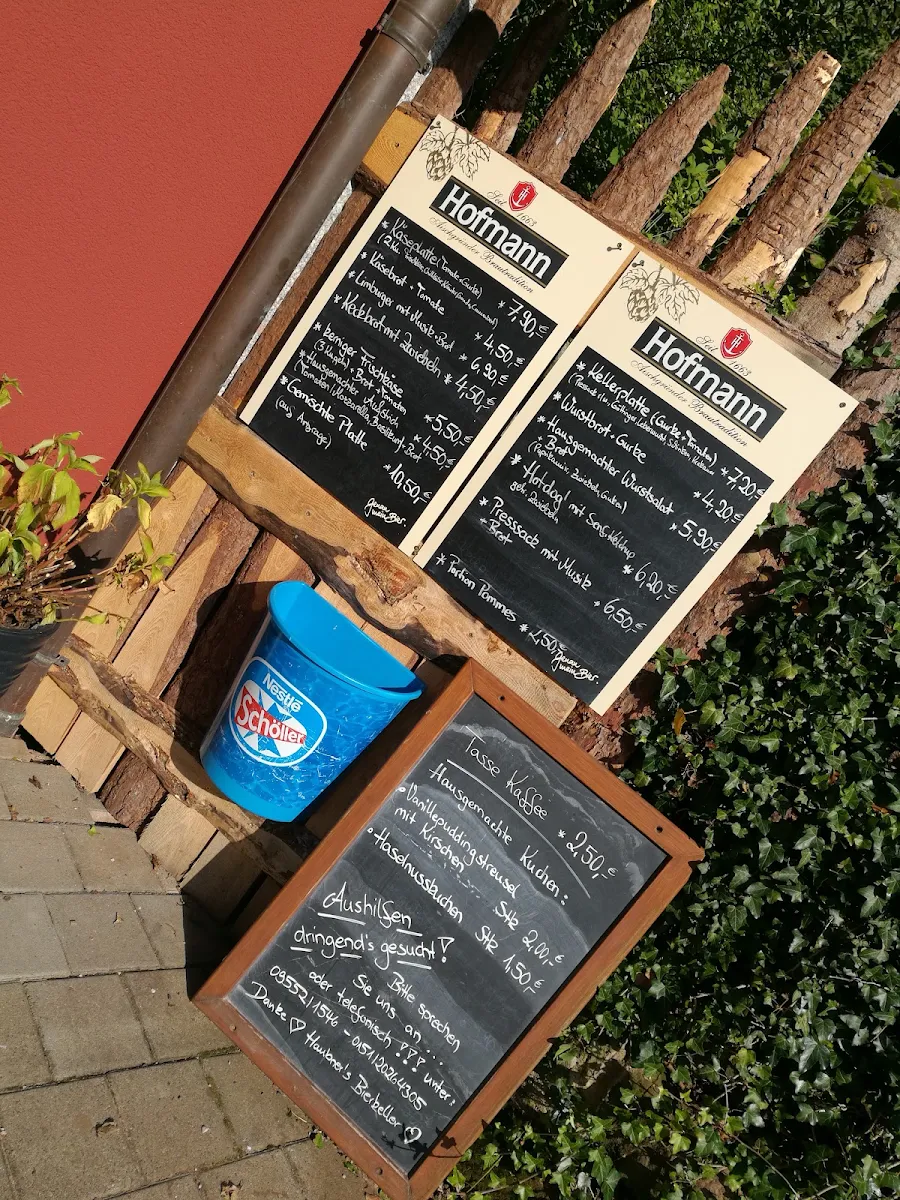 Seit 1663
Hofmann
Aischgründer Brautradition
* Käseplatte (Tomate + Gurke) * 7,90,-€
(2 Kä.
* Käsebrot + Tomate * 4,50,-€
* Limburger mit Musik + Brot * 6,90,-€
* Keckbrot mit Zwiebeln * 4,50,-€
* 3 Kugeln) + Brot + Tomaten * 5,50,-€
* Hausgemachter Aufstrich * 4,50,-€
(Tomaten, Mozzarella, Basilikum) + Brot
* Gemischte Platte * 10,50,-€
(aus Anfrage)
Seit 1663
Hofmann
Aischgründer Brautradition
* Kellerplatte (Gurke + Tomaten) * 7,20,-€
* Wurstbrot + Gurke * 4,20,-€
* Hausgemachter Wurstsalat * 5,90,-€
+ Brot (Paprika, Zwiebeln, Gurken)
* Hotdog! mit Senf, Ketchup * 6,20,-€
Zwiebeln
* Presssack mit Musik * 6,50,-€
+ Brot
* Portion Pommes * 2,50,-€
Nestlé
Schöller
Tasse Kaffee * 2,50,-€
Hausgemachte Kuchen:
• Vanillepuddingstreusel
mit Kirschen Stk 2,00,-€
• Haselnusskuchen Stk 1,50,-€
Aushilfen
dringend's gesucht!
Bitte sprechen
Sie uns an...
oder telefonisch ??? unter:
09552/1546 - 0151120264305
Danke ♡ Haubner's Bierkeller ♡